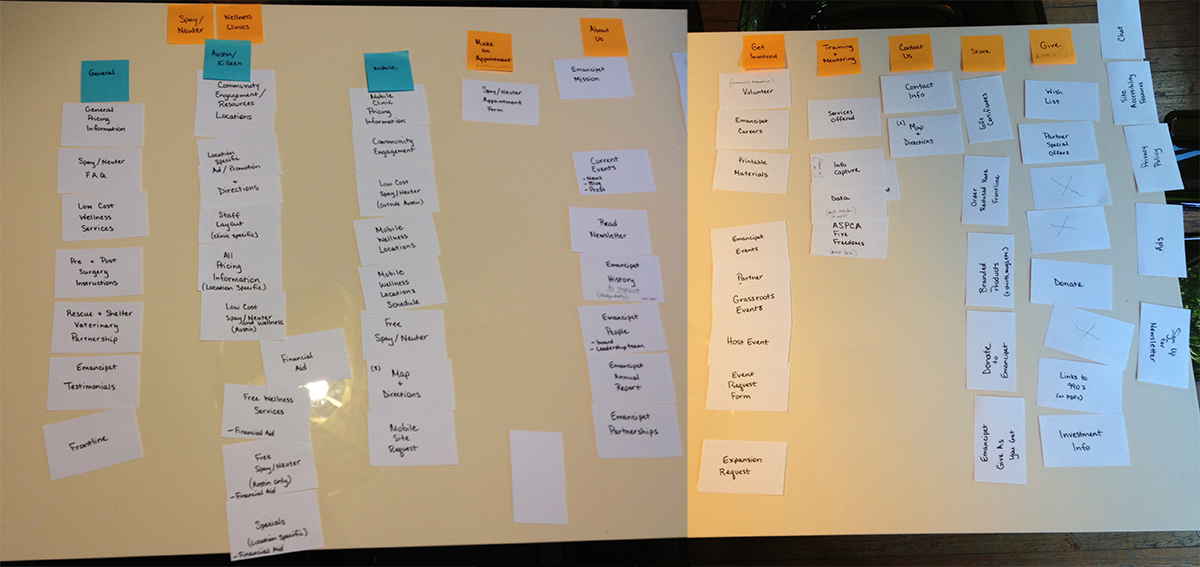 Spay/
Neuter
Wellness
Clinics
General
General
Pricing
Information
Spay/Neuter
F.A.Q.
Low Cost
Wellness
Services
Pre + Post
Surgery
Instructions
Rescue + Shelter
Veterinary
Partnership
Emancipet
Testimonials
Frontline
Austin/
Killeen
Community
Engagement/
Resources
Locations
Location
Specific
Ad/Promotion
+
Directions
Staff
Layout
(clinic specific)
All
Pricing
Information
(Location Specific)
Low Cost
Spay/Neuter
and Wellness
(Austin)
Financial
Aid
Free Wellness
Services
- Financial Aid
Free
Spay/Neuter
(Austin only)
- Financial Aid
Specials
(Location Specific)
- Financial Aid
Mobile
Mobile
Clinic
Pricing
Information
Community
Engagement
Low Cost
Spay/Neuter
(outside Austin)
Mobile
Wellness
Locations
Mobile
Wellness
Locations
Schedule
Free
Spay/Neuter
Map
+
Directions
Mobile
Site
Request
Make
an
Appointment
Spay/Neuter
Appointment
Form
About
Us
Emancipet
Mission
Current
Events
- News
- Blog
- Press
Read
Newsletter
Emancipet
History
Emancipet
People
- board
- Leadership team
Emancipet
Annual
Report
Emancipet
Partnerships
Get
Involved
Volunteer
Emancipet
Careers
Printable
Materials
Emancipet
Events
Partner
Grassroots
Events
Host Event
Event
Request
Form
Expansion
Request
Training
+
Mentoring
Services
Offered
Info
Capture
Data
ASPCA
Five
Freedoms
Contact
Us
Contact
Info
Map
+
Directions
Store
Gift
Certificates
Order
Reduced Rate
Frontline
Branded
Products
(t-shirts, mugs, etc)
Donate
to
Emancipet
Emancipet
Give As
You Get
Give
Wish
List
Partner
Special
Offers
Donate
Links to
990's
(or PDFs)
Investment
Info
Chat
Site
Accessibility
Features
Privacy
Policy
Ads
Sign Up
for
Newsletter